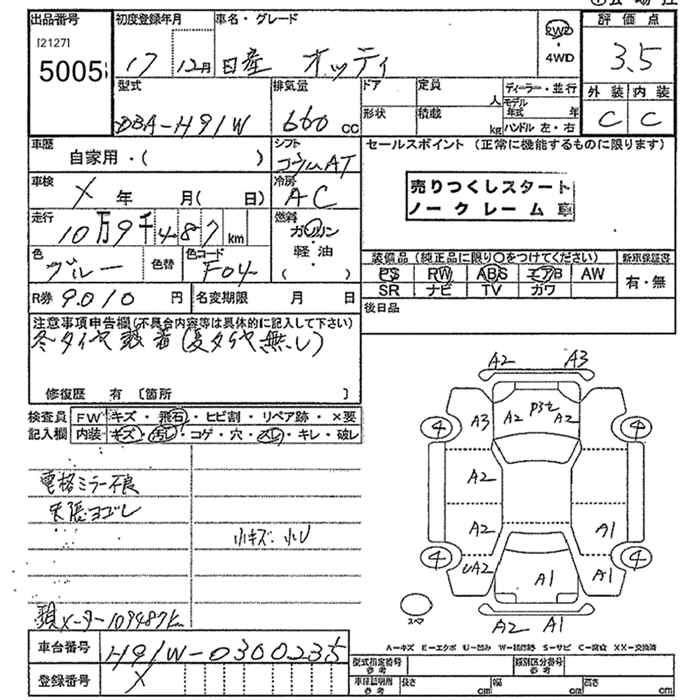 出品番号 初度登録年月 車名・グレード 評価点
[2127]
5005 17 12月 日産 オッティ 2WD ・ 4WD 3.5
型式 排気量 ドア 定員 ディーラー・並行 外装 内装
DBA-H91W 660 cc 形状 積載 人 モデル年式 年 C C
kg ハンドル 左・右
車歴 シフト セールスポイント (正常に機能するものに限ります)
自家用・( ) コラムAT
車検 冷房
X 年 月( 日) AC 売りつくしスタート
走行 燃料 ノークレーム車
10万9千487 km ガソリン
軽油
・( )
色 色替 色コード 装備品 (純正品に限り○をつけてください) 新車保証書
ブルー F04 PS RW ABS エアB AW 有・無
SR ナビ TV カワ
R券 9010 円 名変期限 月 日 後日品
注意事項申告欄(不具合内容等は具体的に記入して下さい)
冬タイヤ装着(夏タイヤ無し)
修復歴 有 〔箇所 〕
検査員 FW キズ・飛石・ヒビ割・リペア跡・×要
記入欄 内装 キズ・汚レ・コゲ・穴・スレ・キレ・破レ
A2 A3
A3 A2 A2
4 4
電格ミラー不良
天張ヨゴレ
A2
小キズ・小U A2 A1
4 4
UA2 A1 A1
スペア
A2 A1
メーター109487km
A=キズ E=エクボ U=凹み W=補修跡 S=サビ C=腐食 XX=交換済
車台番号 H91W-0300235
型式指定番号 参考 類別区分番号 参考
登録番号 X
車体証明用 参考 長さ cm 幅 cm 高さ cm